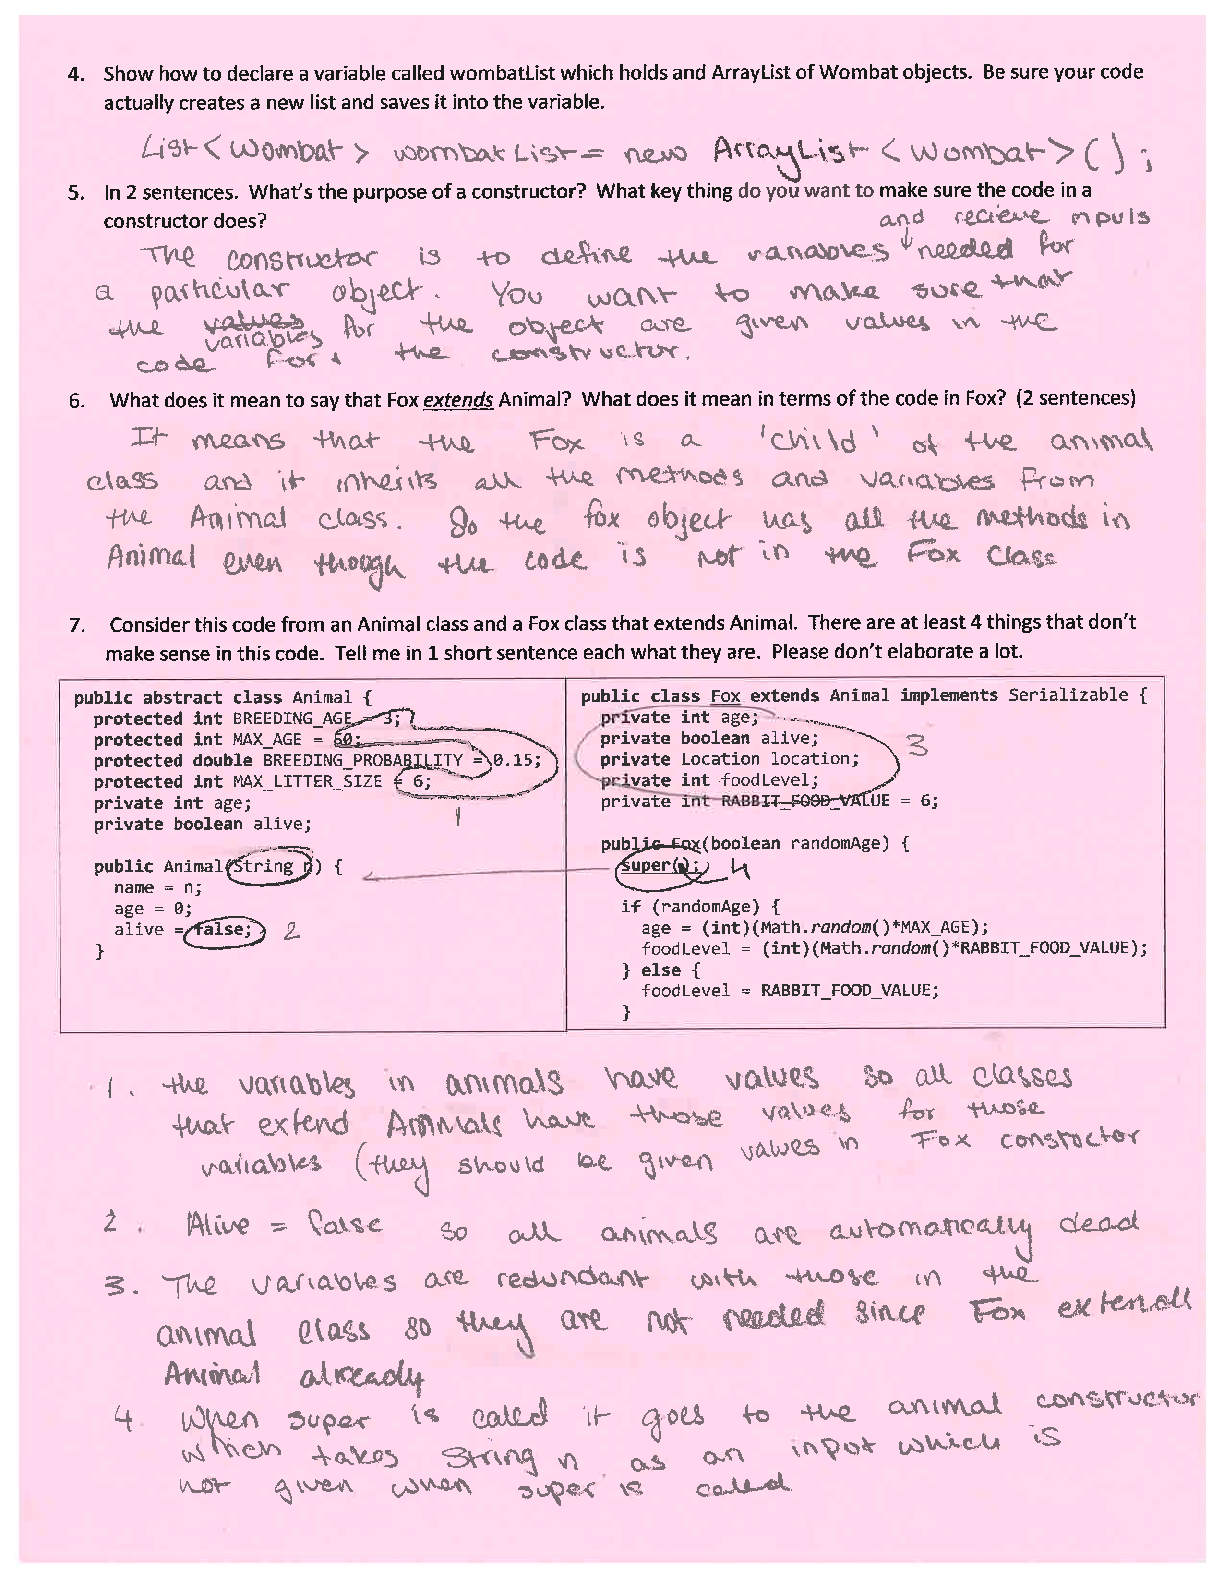 4. Show how to declare a variable called wombatList which holds and ArrayList of Wombat objects. Be sure your code
actually creates a new list and saves it into the variable.
List<Wombat> wombatList = new ArrayList<Wombat>();
5. In 2 sentences. What's the purpose of a constructor? What key thing do you want to make sure the code in a
constructor does?
and recieve inputs
The constructor is to define the variables ↓ needed for
a particular object. You want to make sure that
the values variables for the object are given values in the
code for the constructor.
6. What does it mean to say that Fox extends Animal? What does it mean in terms of the code in Fox? (2 sentences)
It means that the Fox is a 'child' of the animal
class and it inherits all the methods and variables from
the Animal class. So the fox object has all the methods in
Animal even though the code is not in the Fox Class
7. Consider this code from an Animal class and a Fox class that extends Animal. There are at least 4 things that don't
make sense in this code. Tell me in 1 short sentence each what they are. Please don't elaborate a lot.
public abstract class Animal {
protected int BREEDING_AGE = 3;
protected int MAX_AGE = 50;
protected double BREEDING_PROBABILITY = 0.15;
protected int MAX_LITTER_SIZE = 6;
private int age;
private boolean alive;
1
public Animal(String n) {
name = n;
age = 0;
alive = false; 2
}
public class Fox extends Animal implements Serializable {
private int age;
private boolean alive; 3
private Location location;
private int foodLevel;
private int RABBIT_FOOD_VALUE = 6;
public Fox(boolean randomAge) {
super(); 4
if (randomAge) {
age = (int)(Math.random()*MAX_AGE);
foodLevel = (int)(Math.random()*RABBIT_FOOD_VALUE);
} else {
foodLevel = RABBIT_FOOD_VALUE;
}
1. the variables in animals have values so all classes
that extend Animals have those values for those
variables (they should be given values in Fox constructor
2. Alive = false so all animals are automatically dead
3. The variables are redundant with those in the
animal class so they are not needed since Fox extends
Animal already
4. When super is called it goes to the animal constructor
which takes String n as an input which is
not given when super is called